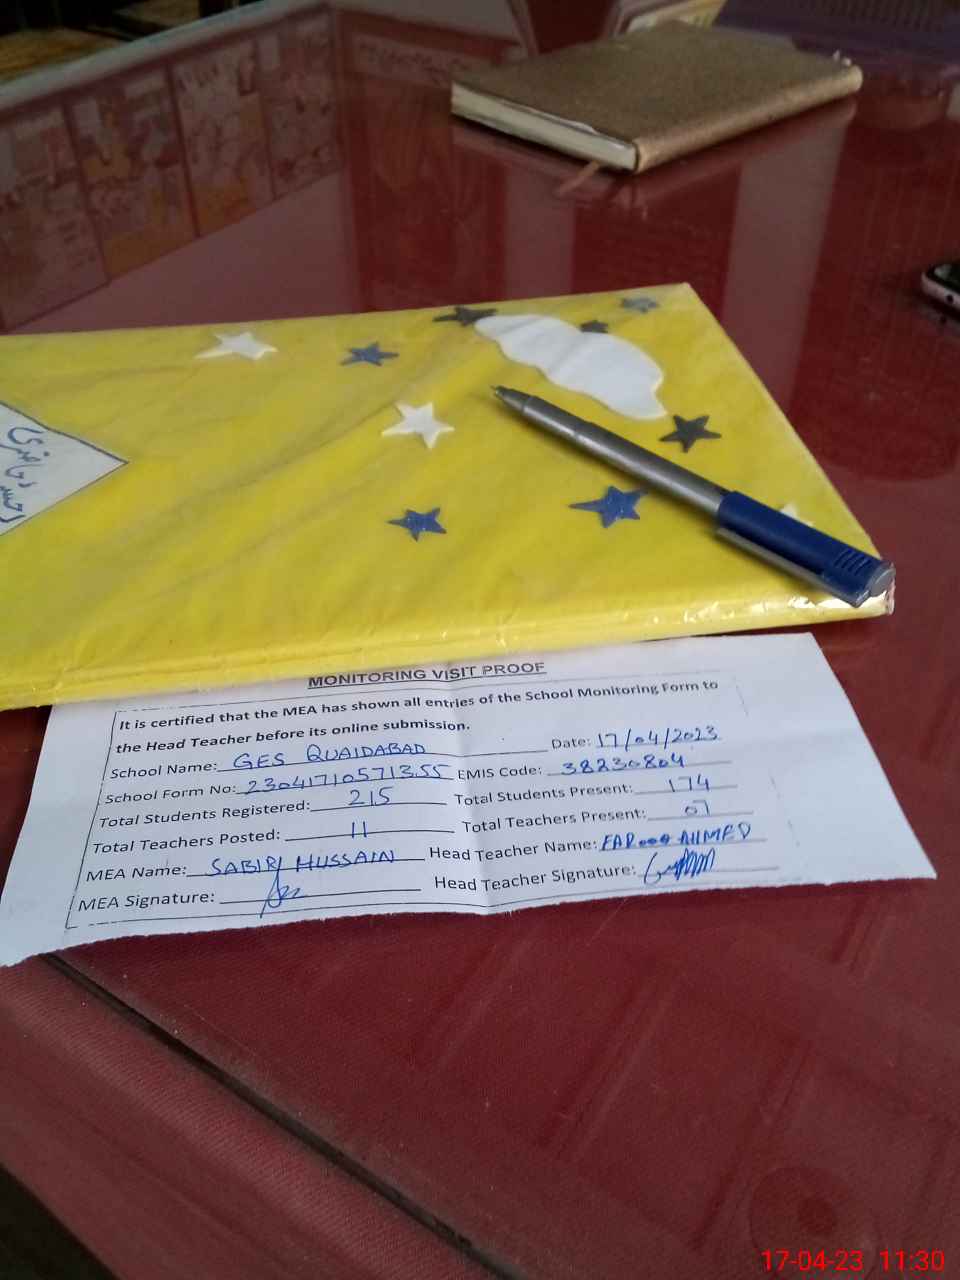 حاضری
MONITORING VISIT PROOF
It is certified that the MEA has shown all entries of the School Monitoring Form to
the Head Teacher before its online submission.
School Name: GES QUAIDABAD Date: 17/04/2023
School Form No: 230417105713.55 EMIS Code: 38230804
Total Students Registered: 215 Total Students Present: 174
Total Teachers Posted: 11 Total Teachers Present: 07
MEA Name: SABIR HUSSAIN Head Teacher Name: FAROOQ AHMED
MEA Signature: Head Teacher Signature:
17-04-23 11:30